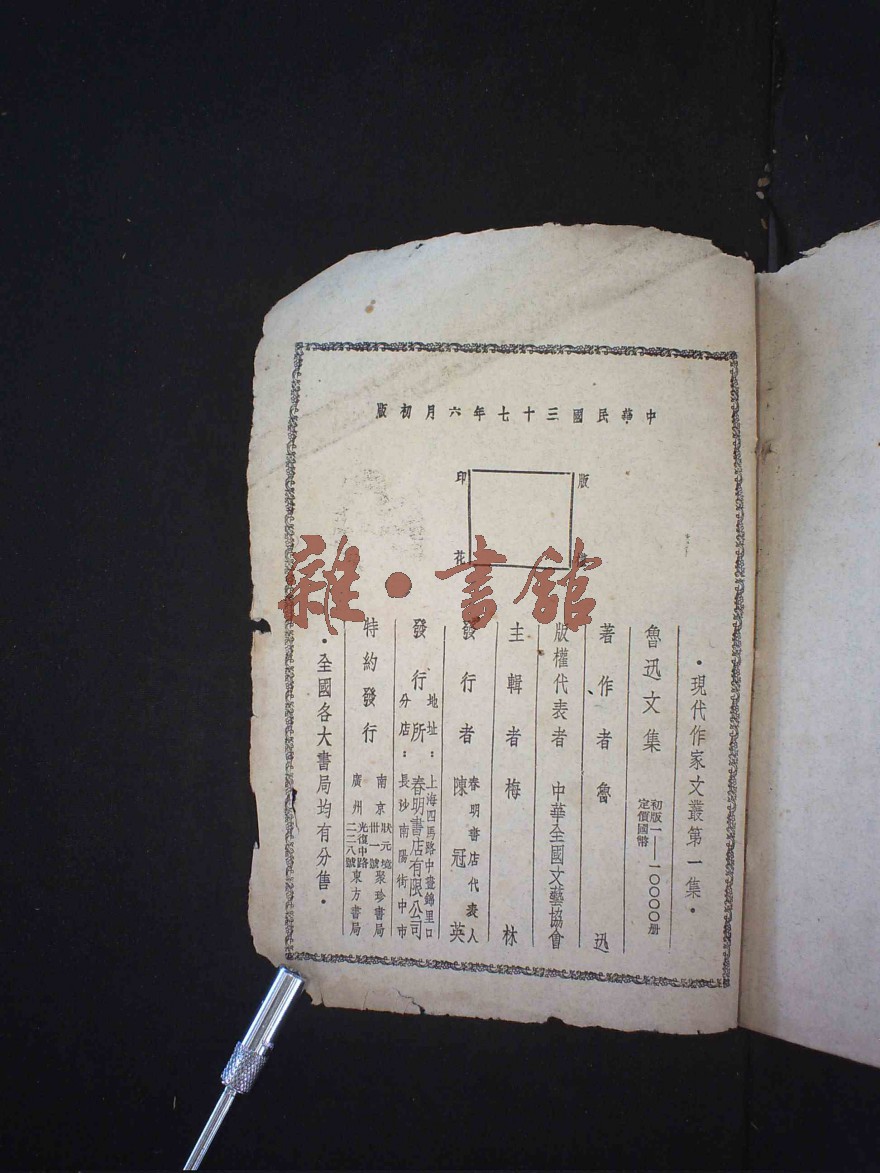 中華民國三十七年六月初版
版
印花
雜·書館
·現代作家文叢第一集·
魯迅文集
初版一——一〇〇〇〇册
定價國幣
著作者 魯迅
版權代表者 中華全國文藝協會
主輯者 梅林
發行者 春明書店代表人 陳冠英
發行所 春明書店有限公司
地址：上海四馬路中晝錦里口
分店：長沙南陽街中市
特約發行
南京狀元境卅一號聚珍書局
廣州光復中路二二八號東方書局
·全國各大書局均有分售·